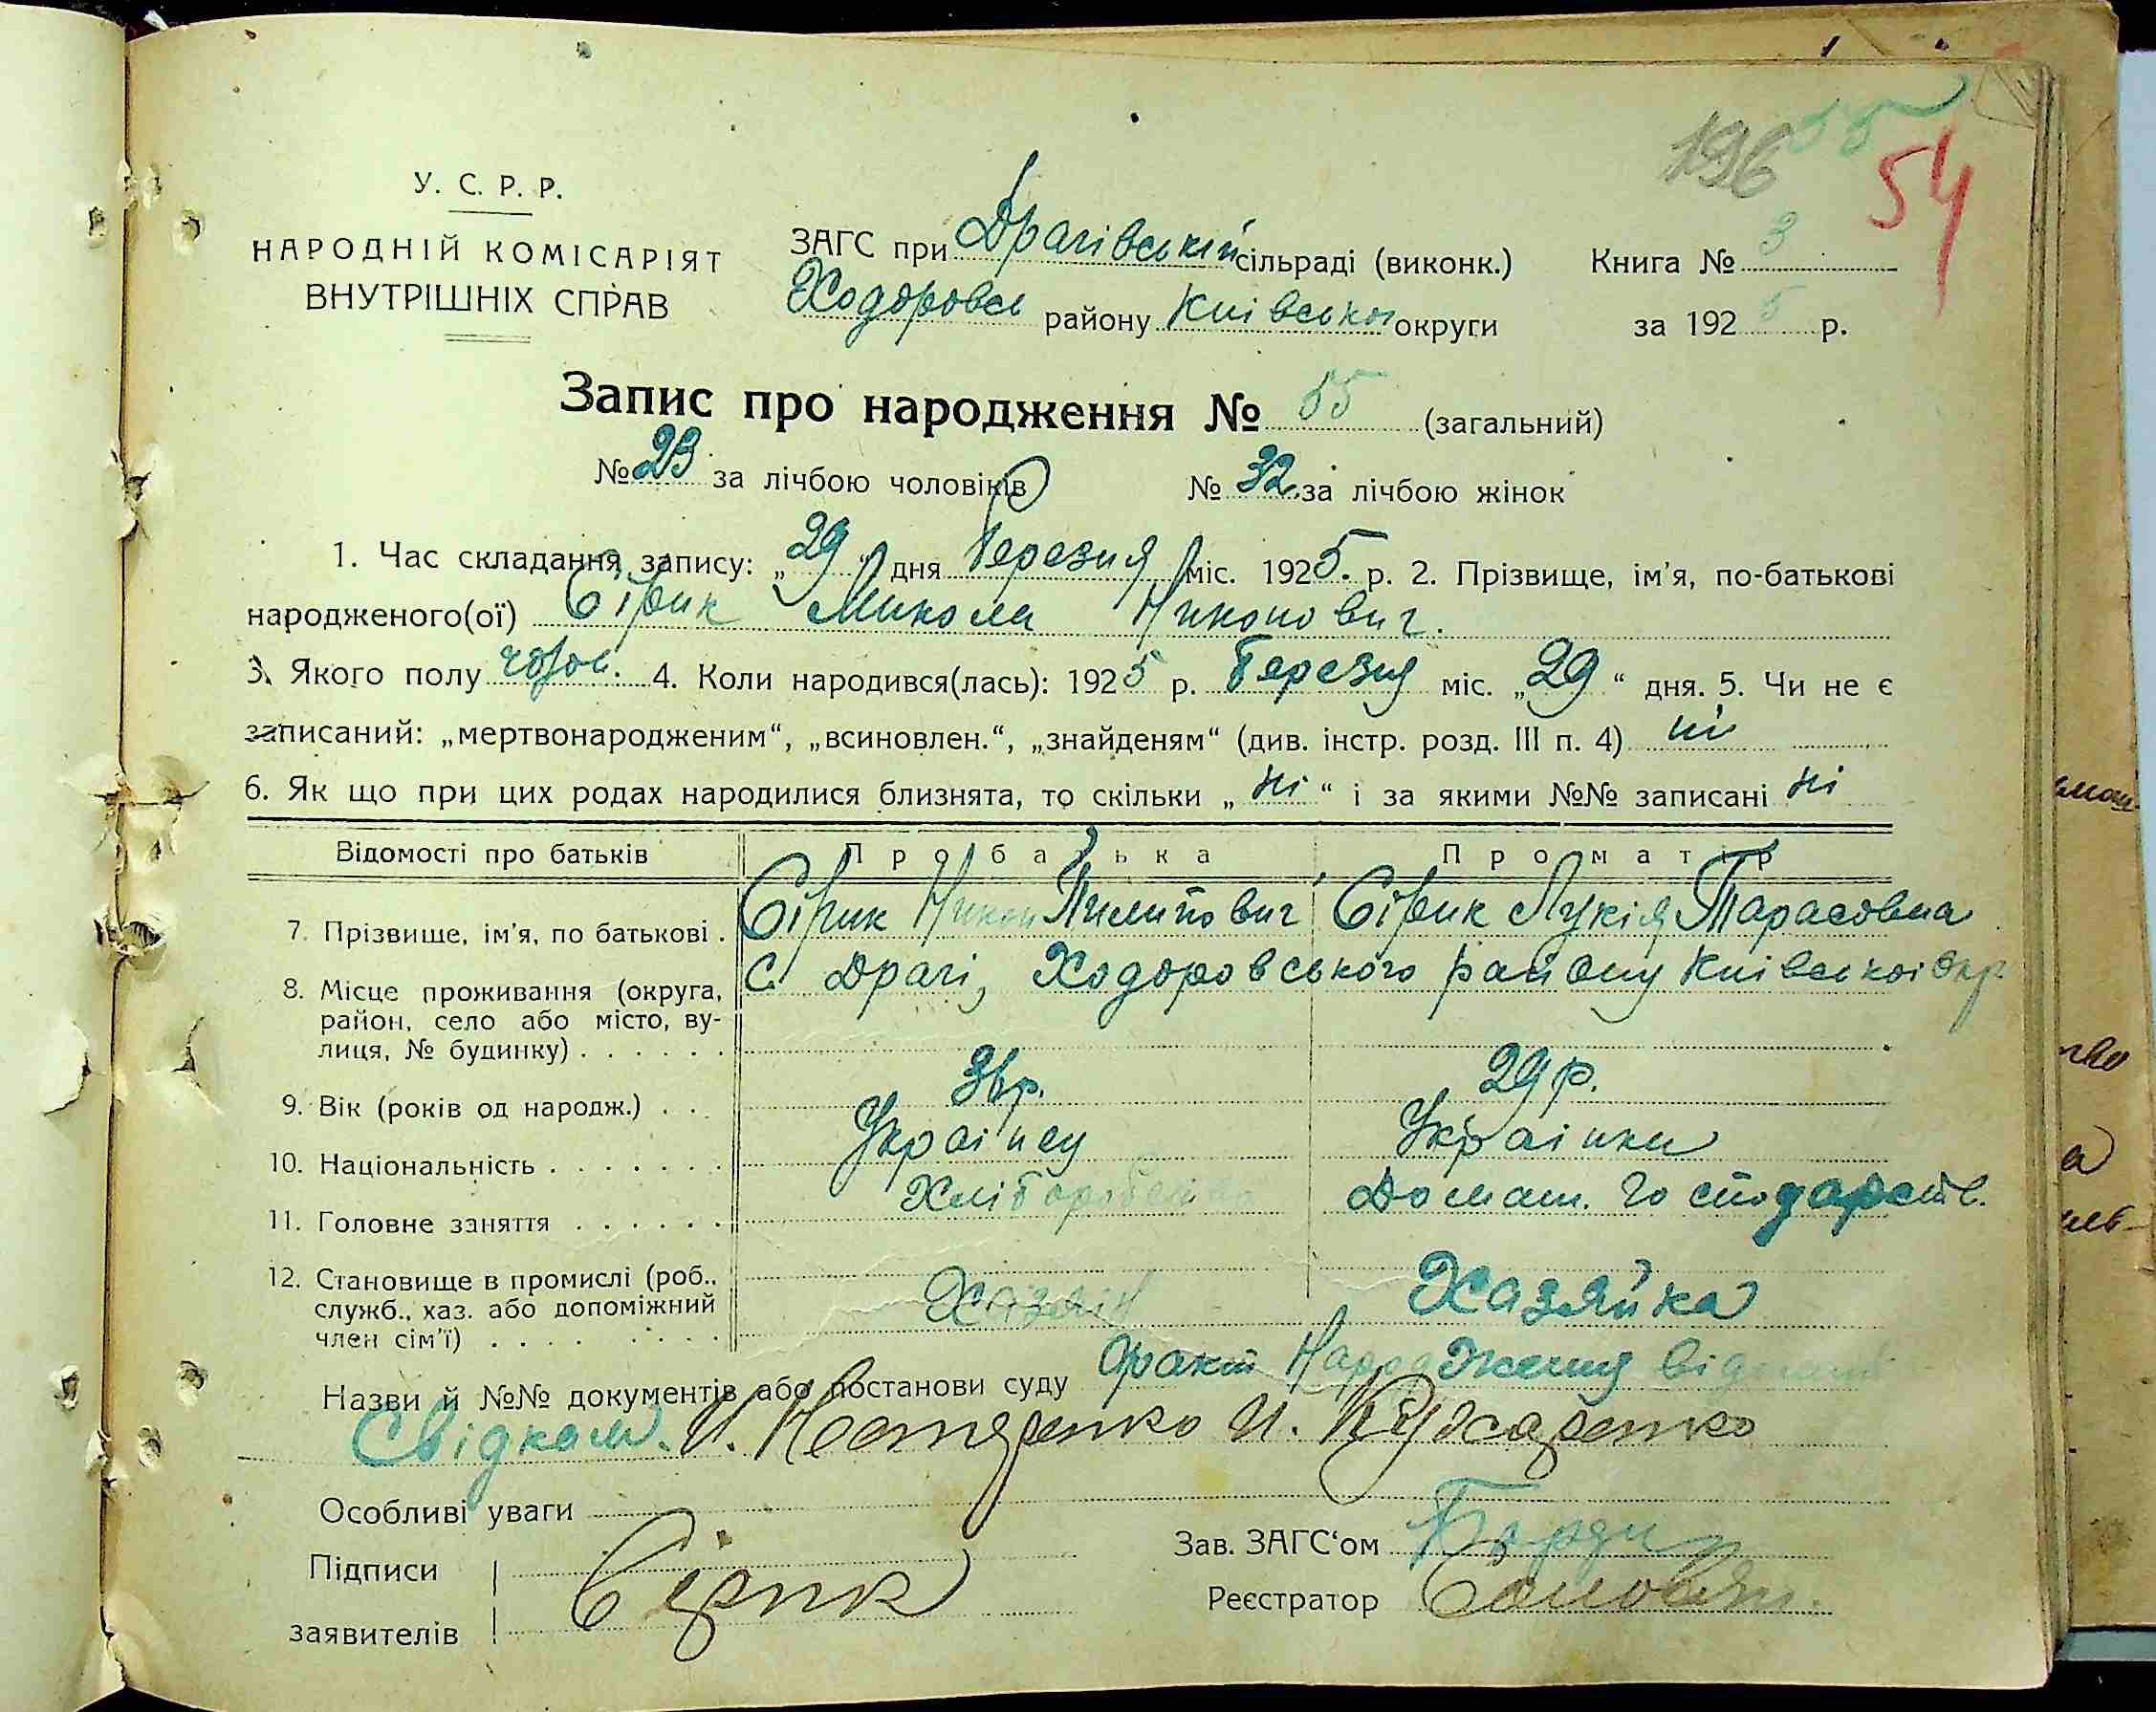 196 55
54
У. С. Р. Р.
НАРОДНІЙ КОМІСАРІЯТ
ВНУТРІШНІХ СПРАВ
ЗАГС при Драгівській сільраді (виконк.) Книга № 3
Ходоровськ району Київської округи за 1925 р.
Запис про народження № 55 (загальний)
№ 23 за лічбою чоловіків № 32 за лічбою жінок
1. Час складання запису: „29“ дня Березня міс. 1925. р. 2. Прізвище, ім'я, по-батькові
народженого(ої) Сірик Микола Никонович.
3. Якого полу чолов. 4. Коли народився(лась): 1925 р. Березня міс. „29“ дня. 5. Чи не є
записаний: „мертвонародженим“, „всиновлен.“, „знайденям“ (див. інстр. розд. III п. 4) ні
6. Як що при цих родах народилися близнята, то скільки „ні“ і за якими №№ записані ні
Відомості про батьків Про батька Про матір
7. Прізвище, ім'я, по батькові . Сірик Никон Пилипович Сірик Лукія Тарасовна
8. Місце проживання (округа, С. Драгі, Ходоровського району Київськоі Окр.
район, село або місто, ву-
лиця, № будинку) . . . . . .
9. Вік (років од народж.) . . . 29 р.
10. Національність . . . . . . . Українец Українка
11. Головне заняття . . . . . . Хліборобство Домаш. Господарств.
12. Становище в промислі (роб.,
служб., хаз. або допоміжний Хазяїн Хазяйка
член сім'ї) . . . . . . . . .
Назви й №№ документів або постанови суду Факт Народження від
Свідками. И. Нестеренко И. Кухаренко
Особливі уваги
Підписи Зав. ЗАГС'ом
Сірик Реєстратор
заявителів